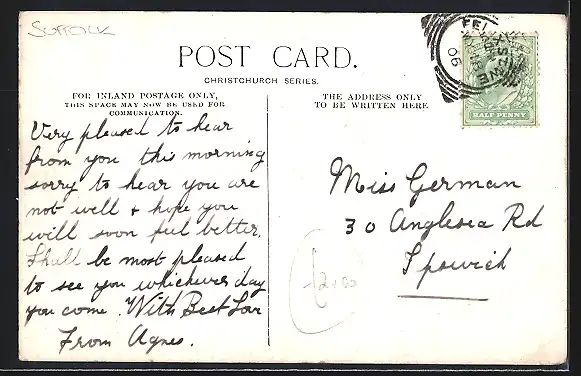 SUFFOLK
POST CARD.
CHRISTCHURCH SERIES.
FOR INLAND POSTAGE ONLY,
THIS SPACE MAY NOW BE USED FOR
COMMUNICATION.
Very pleased to hear
from you this morning
sorry to hear you are
not well + hope you
will soon feel better.
Shall be most pleased
to see you whichever day
you come. With Best Love
From Agnes.
THE ADDRESS ONLY
TO BE WRITTEN HERE
HALF PENNY
06
Miss German
30 Anglesea Rd
Ipswich
£2.00